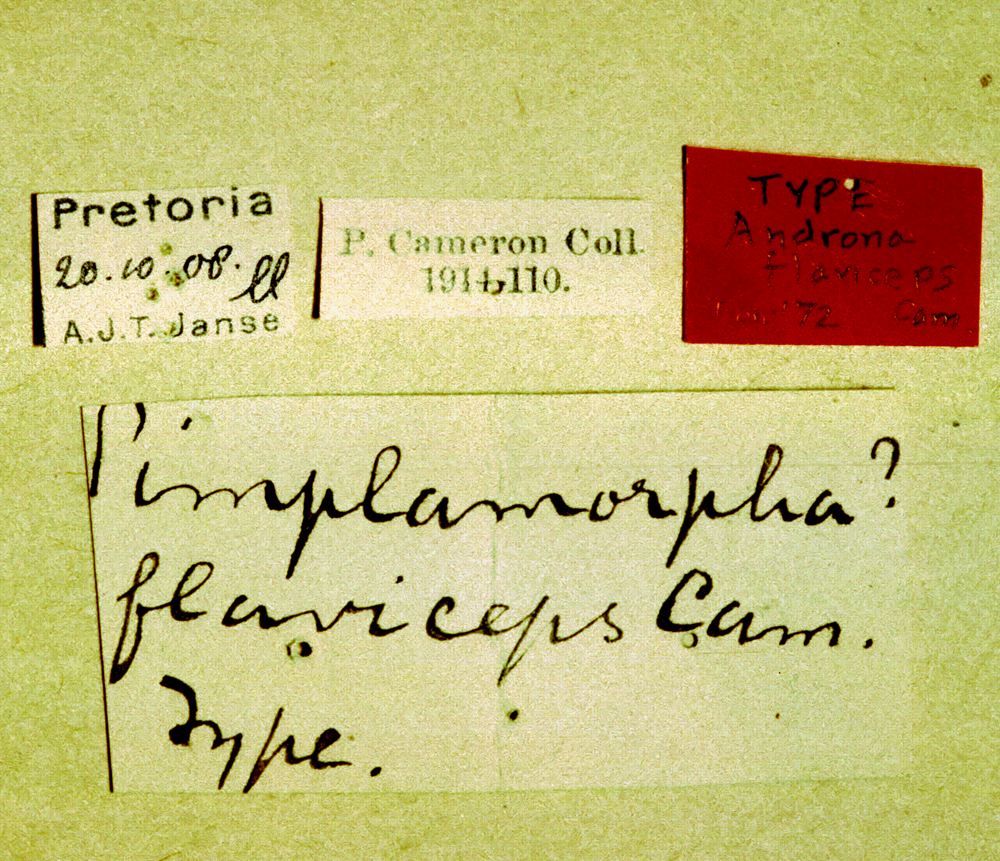 Pretoria
20.10.08.
A.J.T. Janse
P. Cameron Coll.
1914-110.
TYPE
Androna
flaviceps
'72 Cam
Pimplamorpha?
flaviceps Cam.
Type.